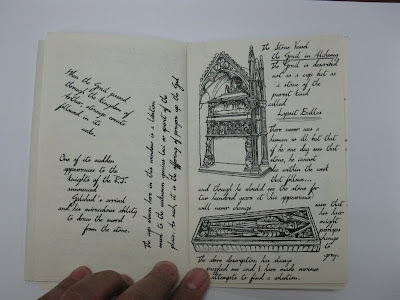 When the Grail passed
through the kingdom of
Arthur, strange events
followed in its
wake.
One of its sudden
appearances to the
knights of the R.T.
announced
Galahad's arrival
and his miraculous ability
to draw the sword
from the stone.
The cup drawn here in this window is a libation
vessel to the unknown genius loci or spirit of the
place. As such, it is the offering of prayers up the God
The Stone Vessel
the Grail in Alchemy
The Grail is described
not as a cup but as
a stone of the
purest kind
called
Lapsit Exillis
There never was a
human so ill but that
if he one day sees that
stone, he cannot
die within the week
that follows...
and though he should see the stone for
two hundred years it his appearance
will never change
save that
his hair
might
perhaps
change
to
grey.
The above description has always
puzzled me and I have made various
attempts to find a solution.